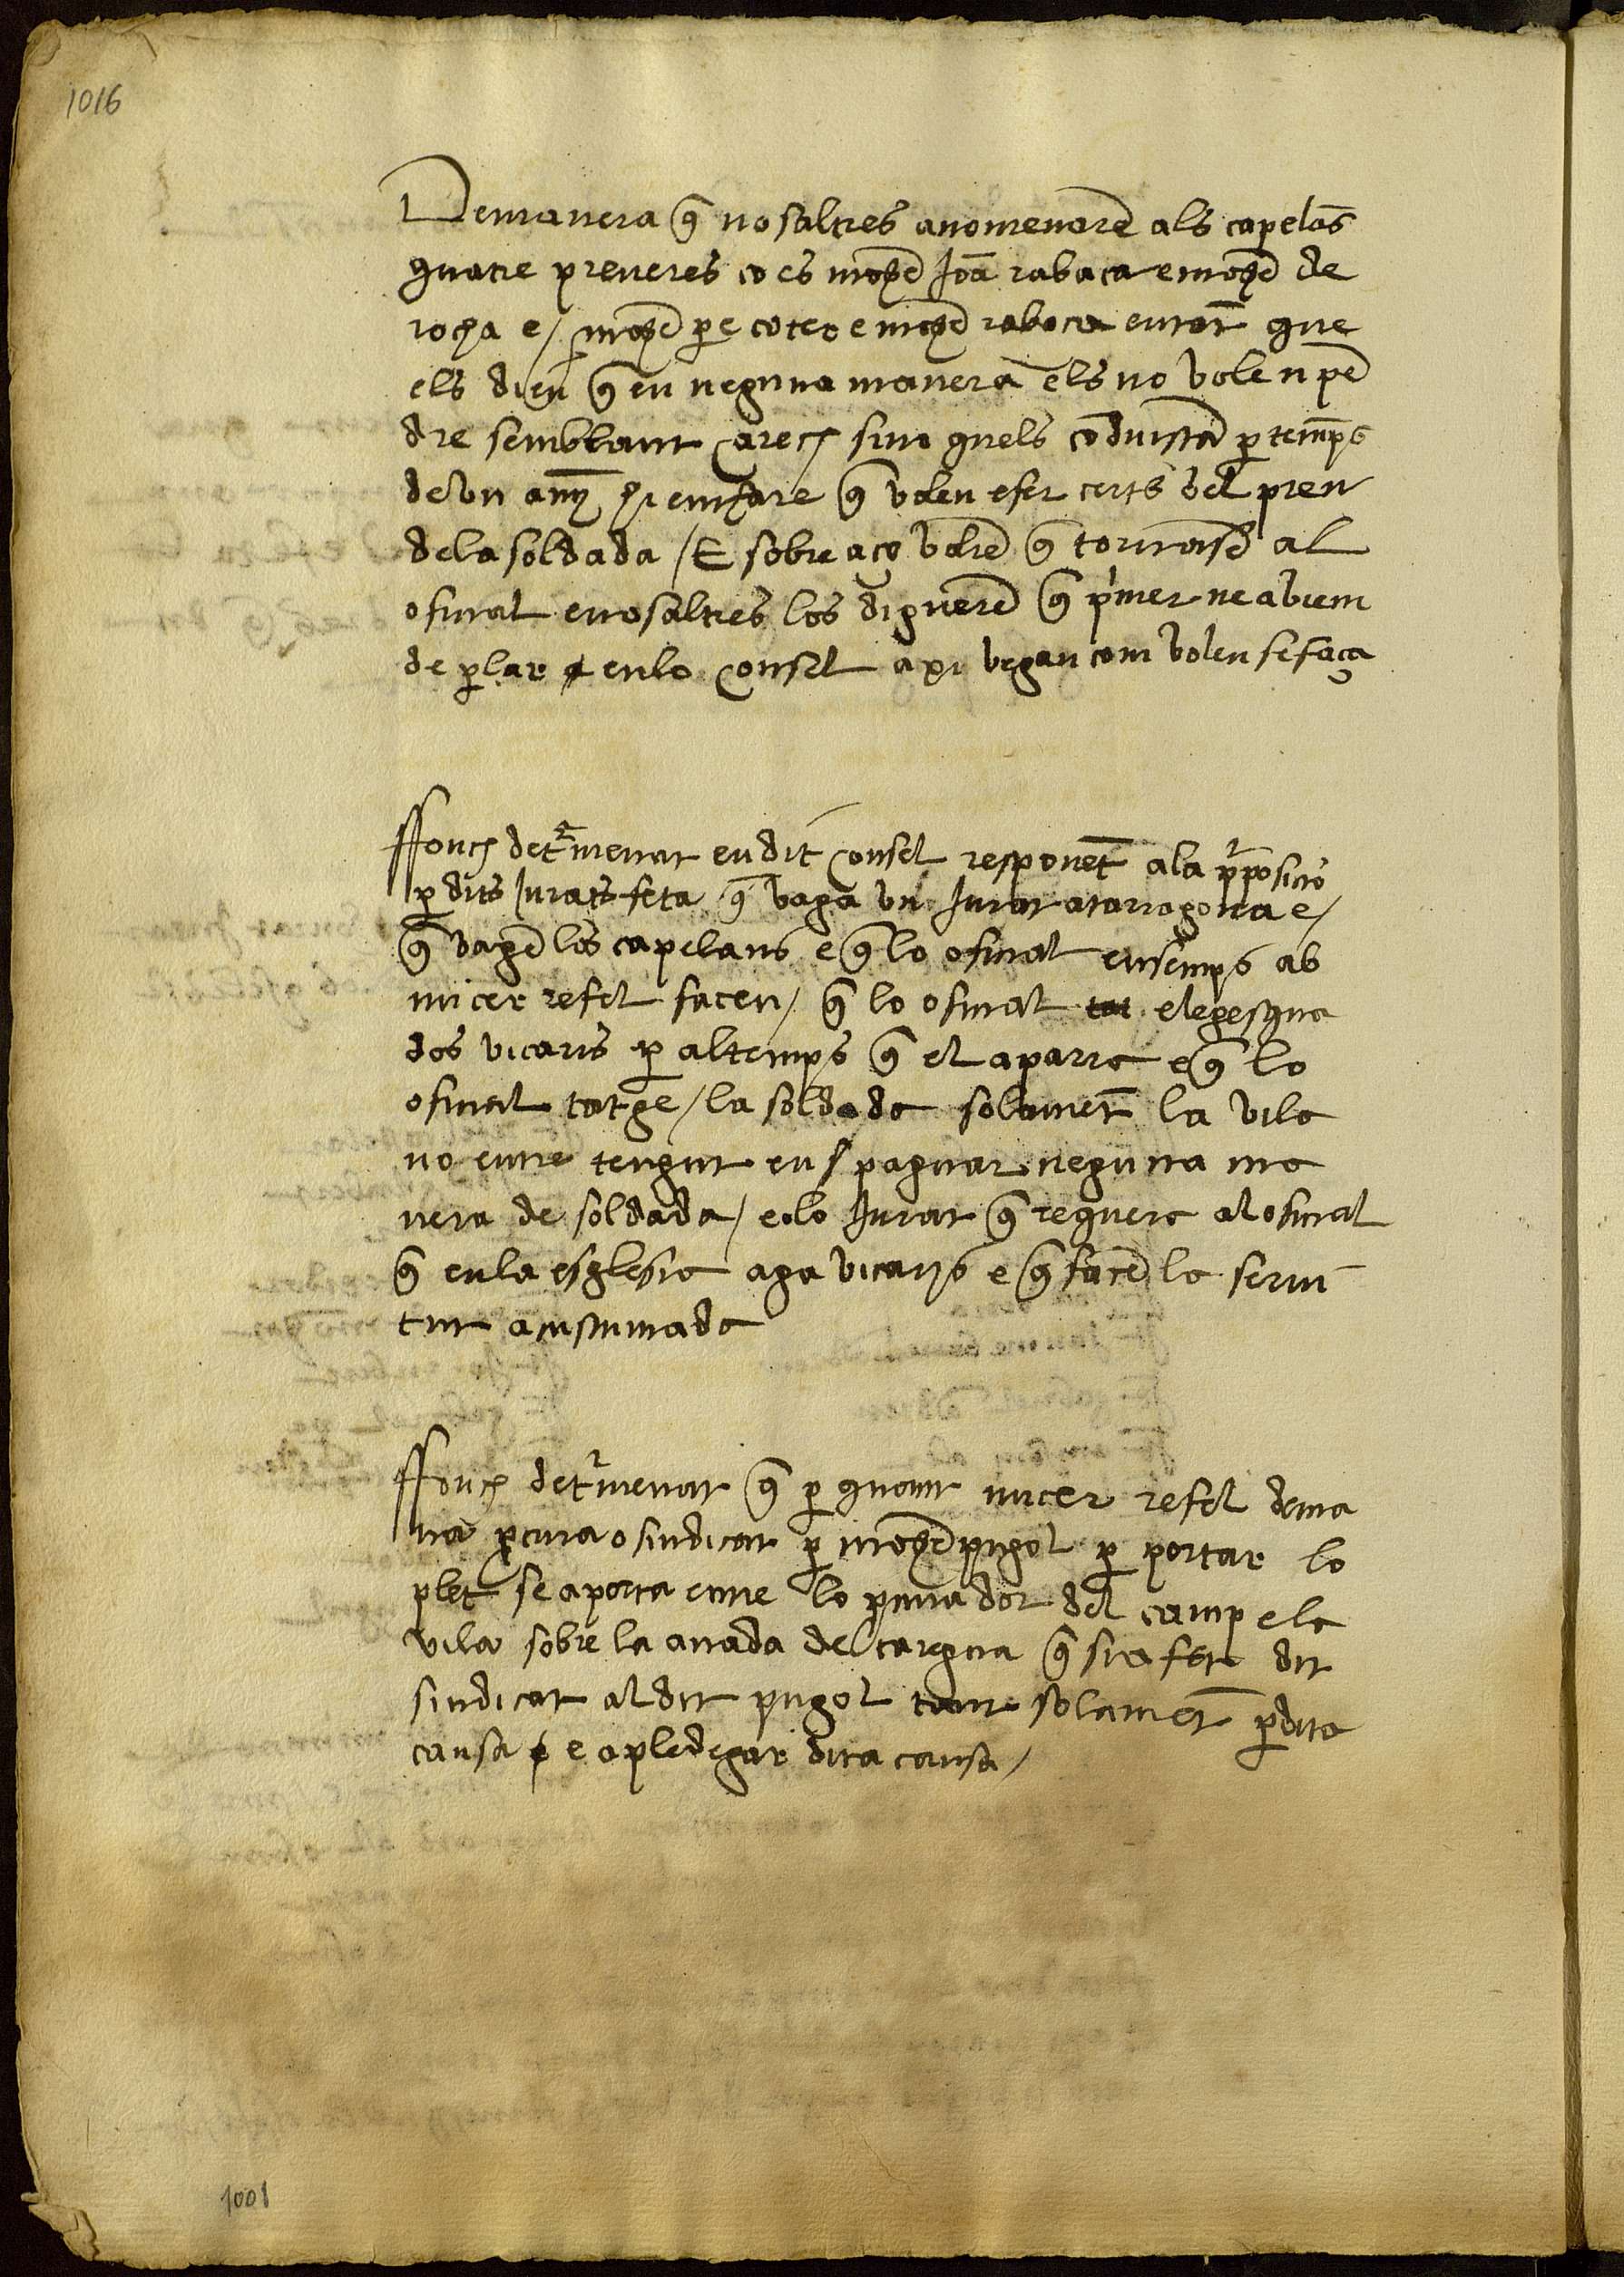 1016
Demanera q̃ nosaltres anomenarẽ als capelãs
quatre preveres co es moss̃e Joã rabaca e moss̃e de
rocha e / moss̃e p̱e coteo e moss̃e rabaca en tot̃ que
els dien q̃ en neguna manera els no volen pẽ
dre semblant carech sino quels cõduistã ꝑ temps
de un any hi emfare q̃ volen eser certs del pren
dela soldada / E sobre aço volrẽ q̃ tornasẽ al
ofisial e nosaltres los diguerẽ q̃ p'mer ne abiem
de ꝑlar en lo consel axi vegan com volen se faça
Ffonch det'menat en dit consel responẽt ala p'posicio
ꝑ dits Jurats feta q̃ vaga un Jurat a tarragona e /
q̃ vagẽ los capelans e q̃ lo ofisial ensemps ab
micer refel facen / q̃ lo ofisial elegesqua
dos vicaris ꝑ al temps q̃ el aparra e q̃ lo
ofisial tatge / la soldada solamẽt la vila
no entre tengut en paguar neguna ma
nera de soldada / e lo Jurat q̃ requera al ofisial
q̃ en la esglesia aga vicarys e q̃ facẽ lo servi
tut acustumada
Ffonch det'menat q̃ ꝑ quant micer refel dema
na ꝓcura o sindicat ꝑ moss̃e pugol ꝑ portar lo
plet se aporta entre lo ꝓcurador del camp e la
vila sobre la anada del caregua q̃ sia fet dit
sindicat al dit pugol tant solamẽt ꝑ dita
causa e a pledegar dita causa /
1001